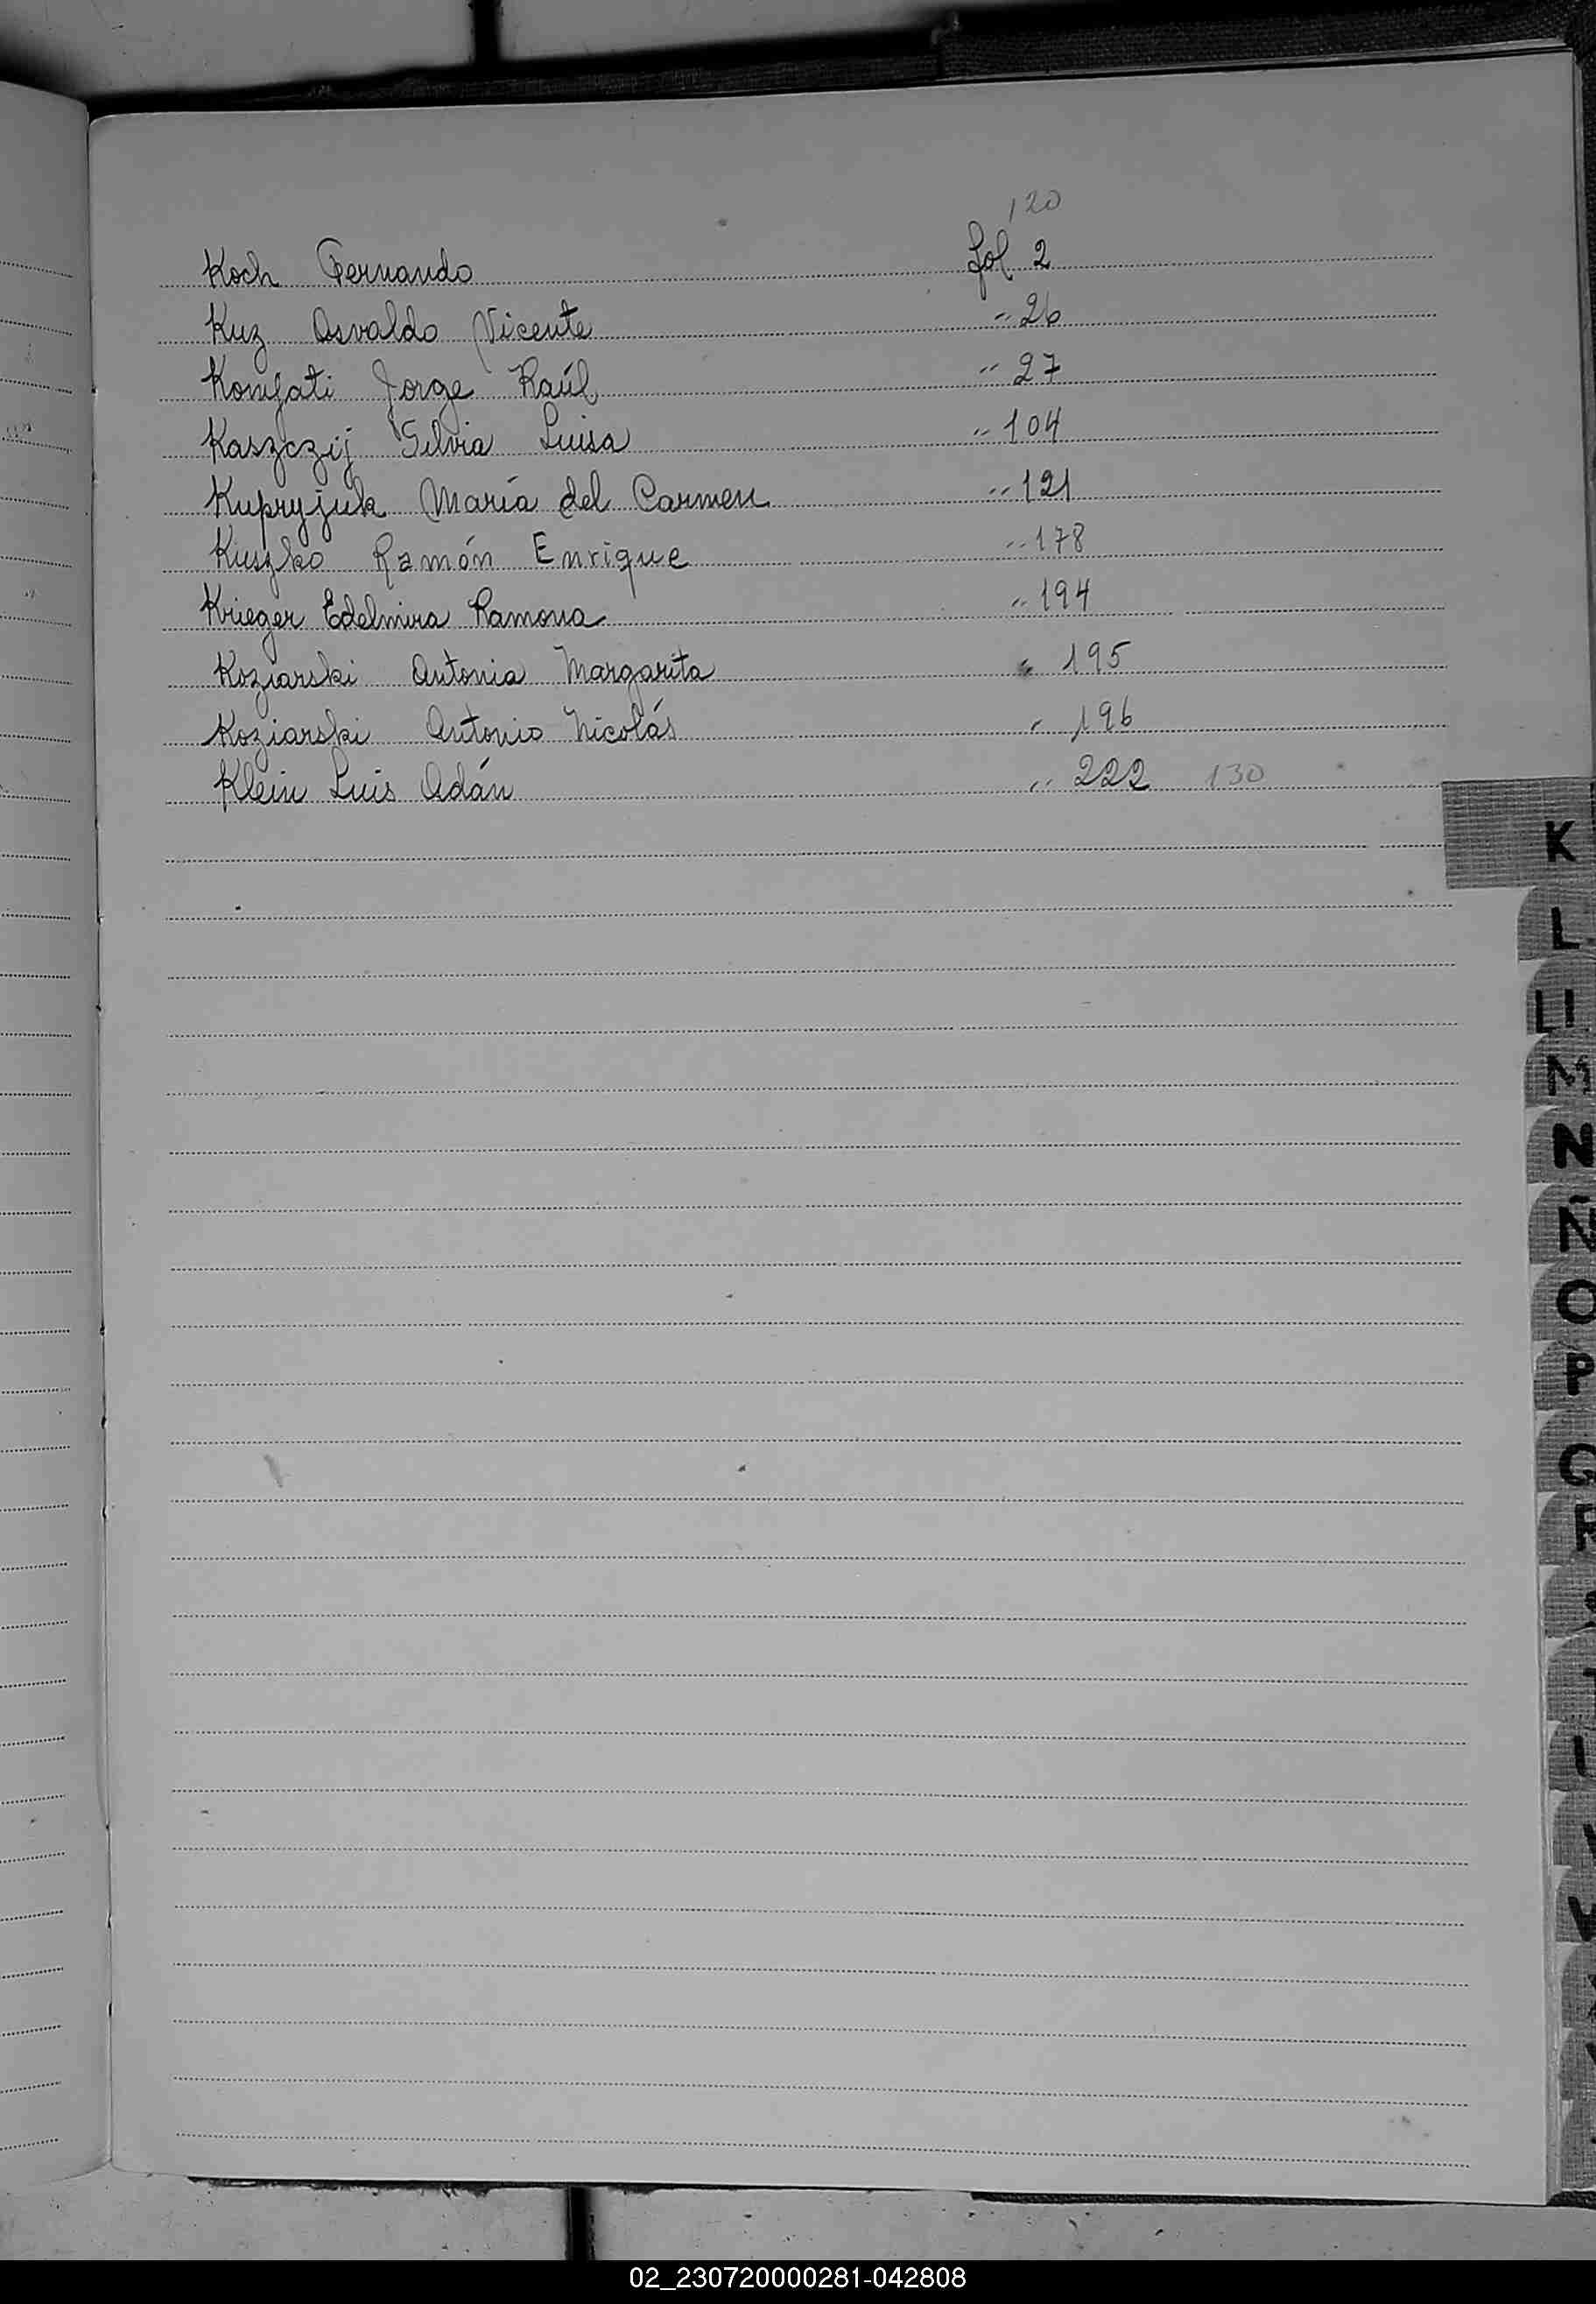 120
Koch Fernando fol 2
Kuz Osvaldo Vicente " 26
Komjati Jorge Raúl " 27
Kaszczij Silvia Luisa " 104
Kupryjuk María del Carmen " 121
Kuszko Ramón Enrique " 178
Krieger Edelmira Ramona " 194
Koziarski Antonia Margarita " 195
Koziarski Antonio Nicolás " 196
Klein Luis Adán " 222 130
K
L
Ll
M
N
Ñ
O
P
R
02_230720000281-042808